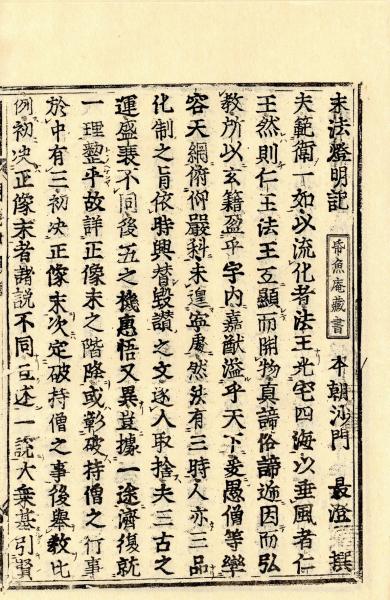 末法燈明記 本朝沙門 最澄 撰
帋魚庵藏書
夫範衛一如以流化者法王光宅四海以垂風者仁
王然則仁王法王互顯而開物真諦俗諦逓因而弘
教所以玄籍盈乎宇内嘉猷溢乎天下爰愚僧等樂
容天網俯仰嚴科未遑寧處然法有三時人亦三品
化制之旨依時興替毀讃之文逐人取捨夫三古之
運盛衰不同後五之機慧悟又異豈據一途濟復就
一理整乎故詳正像末之階降或彰破持僧之行事
於中有三初決正像末次定破持僧之事後舉教比
例初決正像末者諸說不同且述一說大乗基引賢